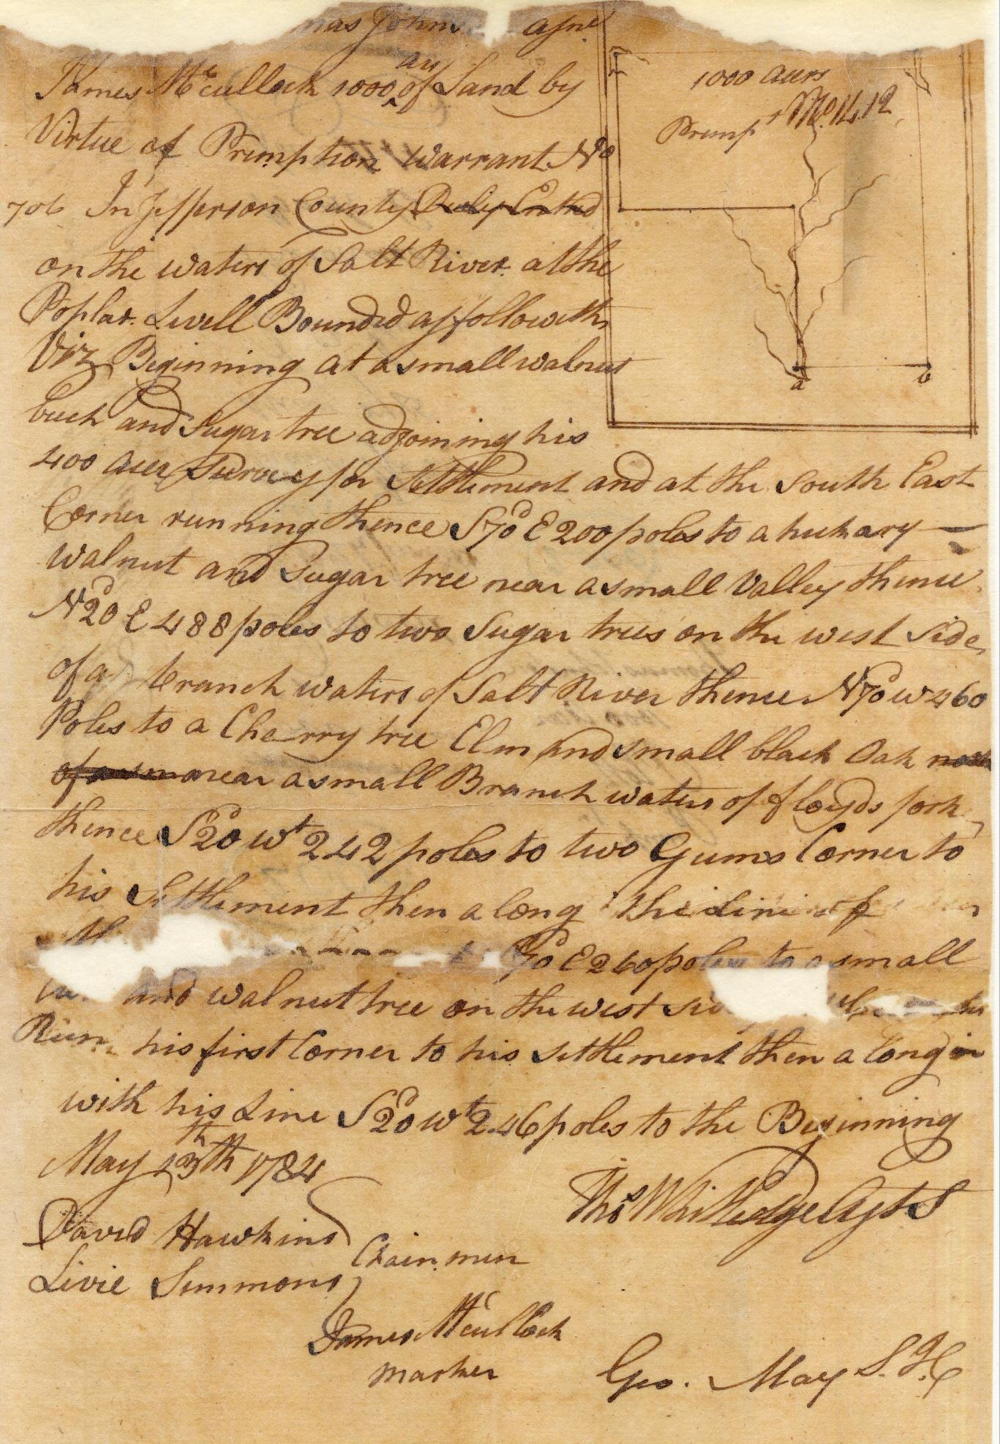 Johns asne
James McCulloch 1000 acrs of Land by
Virtue of Premption Warrant No
706 In Jefferson County Duly Entrd
on the waters of Salt River at the
Poplar Livell Bounded as followeth
Viz Beginning at a small walnut
buch and Sugar tree adjoining his
400 acer Survey for Settlement and at the South East
Corner running thence S70d E 200 poles to a huckary
walnut and Sugar tree near a small Valley thence
N20d E 488 poles to two Sugar trees on the west Side
of a branch waters of Salt River thence N70d W 460
Poles to a Cherry tree Elm and small black Oak
near a small Branch waters of floyds fork
thence S20d Wt 242 poles to two Gums Corner to
his Settlement then a long the Line of
70d E 260 poles to a small
and walnut tree on the west
Run his first Corner to his settlement then a long
with his Line S20d Wt 246 poles to the Beginning
May 13th 1784
Thos Whitledge Asst S
David Hawkins
Livie Simmons
Chain men
James McCulloch
marker
Geo. May S.J.C
1000 acers
Prempt No 1412
a
b